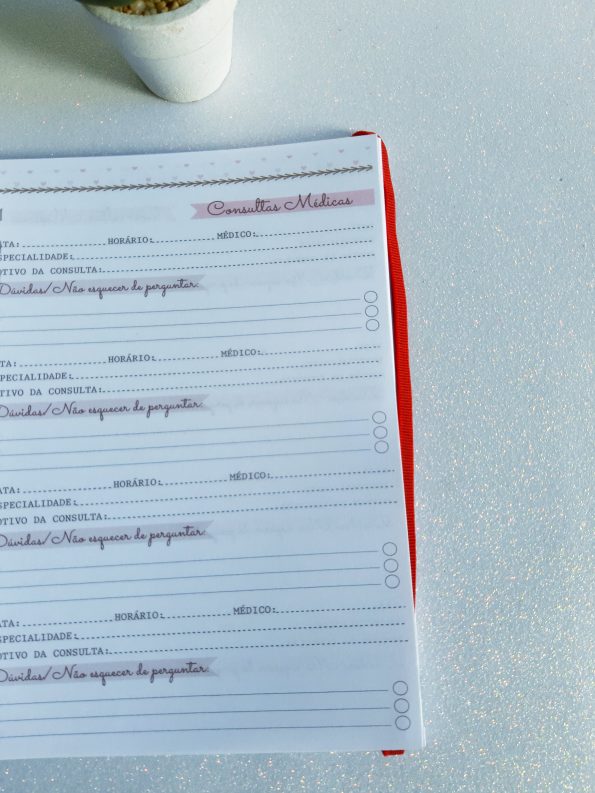 Consultas Médicas
ATA: HORÁRIO: MÉDICO:
SPECIALIDADE:
OTIVO DA CONSULTA:
Dúvidas/Não esquecer de perguntar:
TA: HORÁRIO: MÉDICO:
PECIALIDADE:
TIVO DA CONSULTA:
Dúvidas/Não esquecer de perguntar:
ATA: HORÁRIO: MÉDICO:
SPECIALIDADE:
OTIVO DA CONSULTA:
Dúvidas/Não esquecer de perguntar:
ATA: HORÁRIO: MÉDICO:
SPECIALIDADE:
OTIVO DA CONSULTA:
Dúvidas/Não esquecer de perguntar: